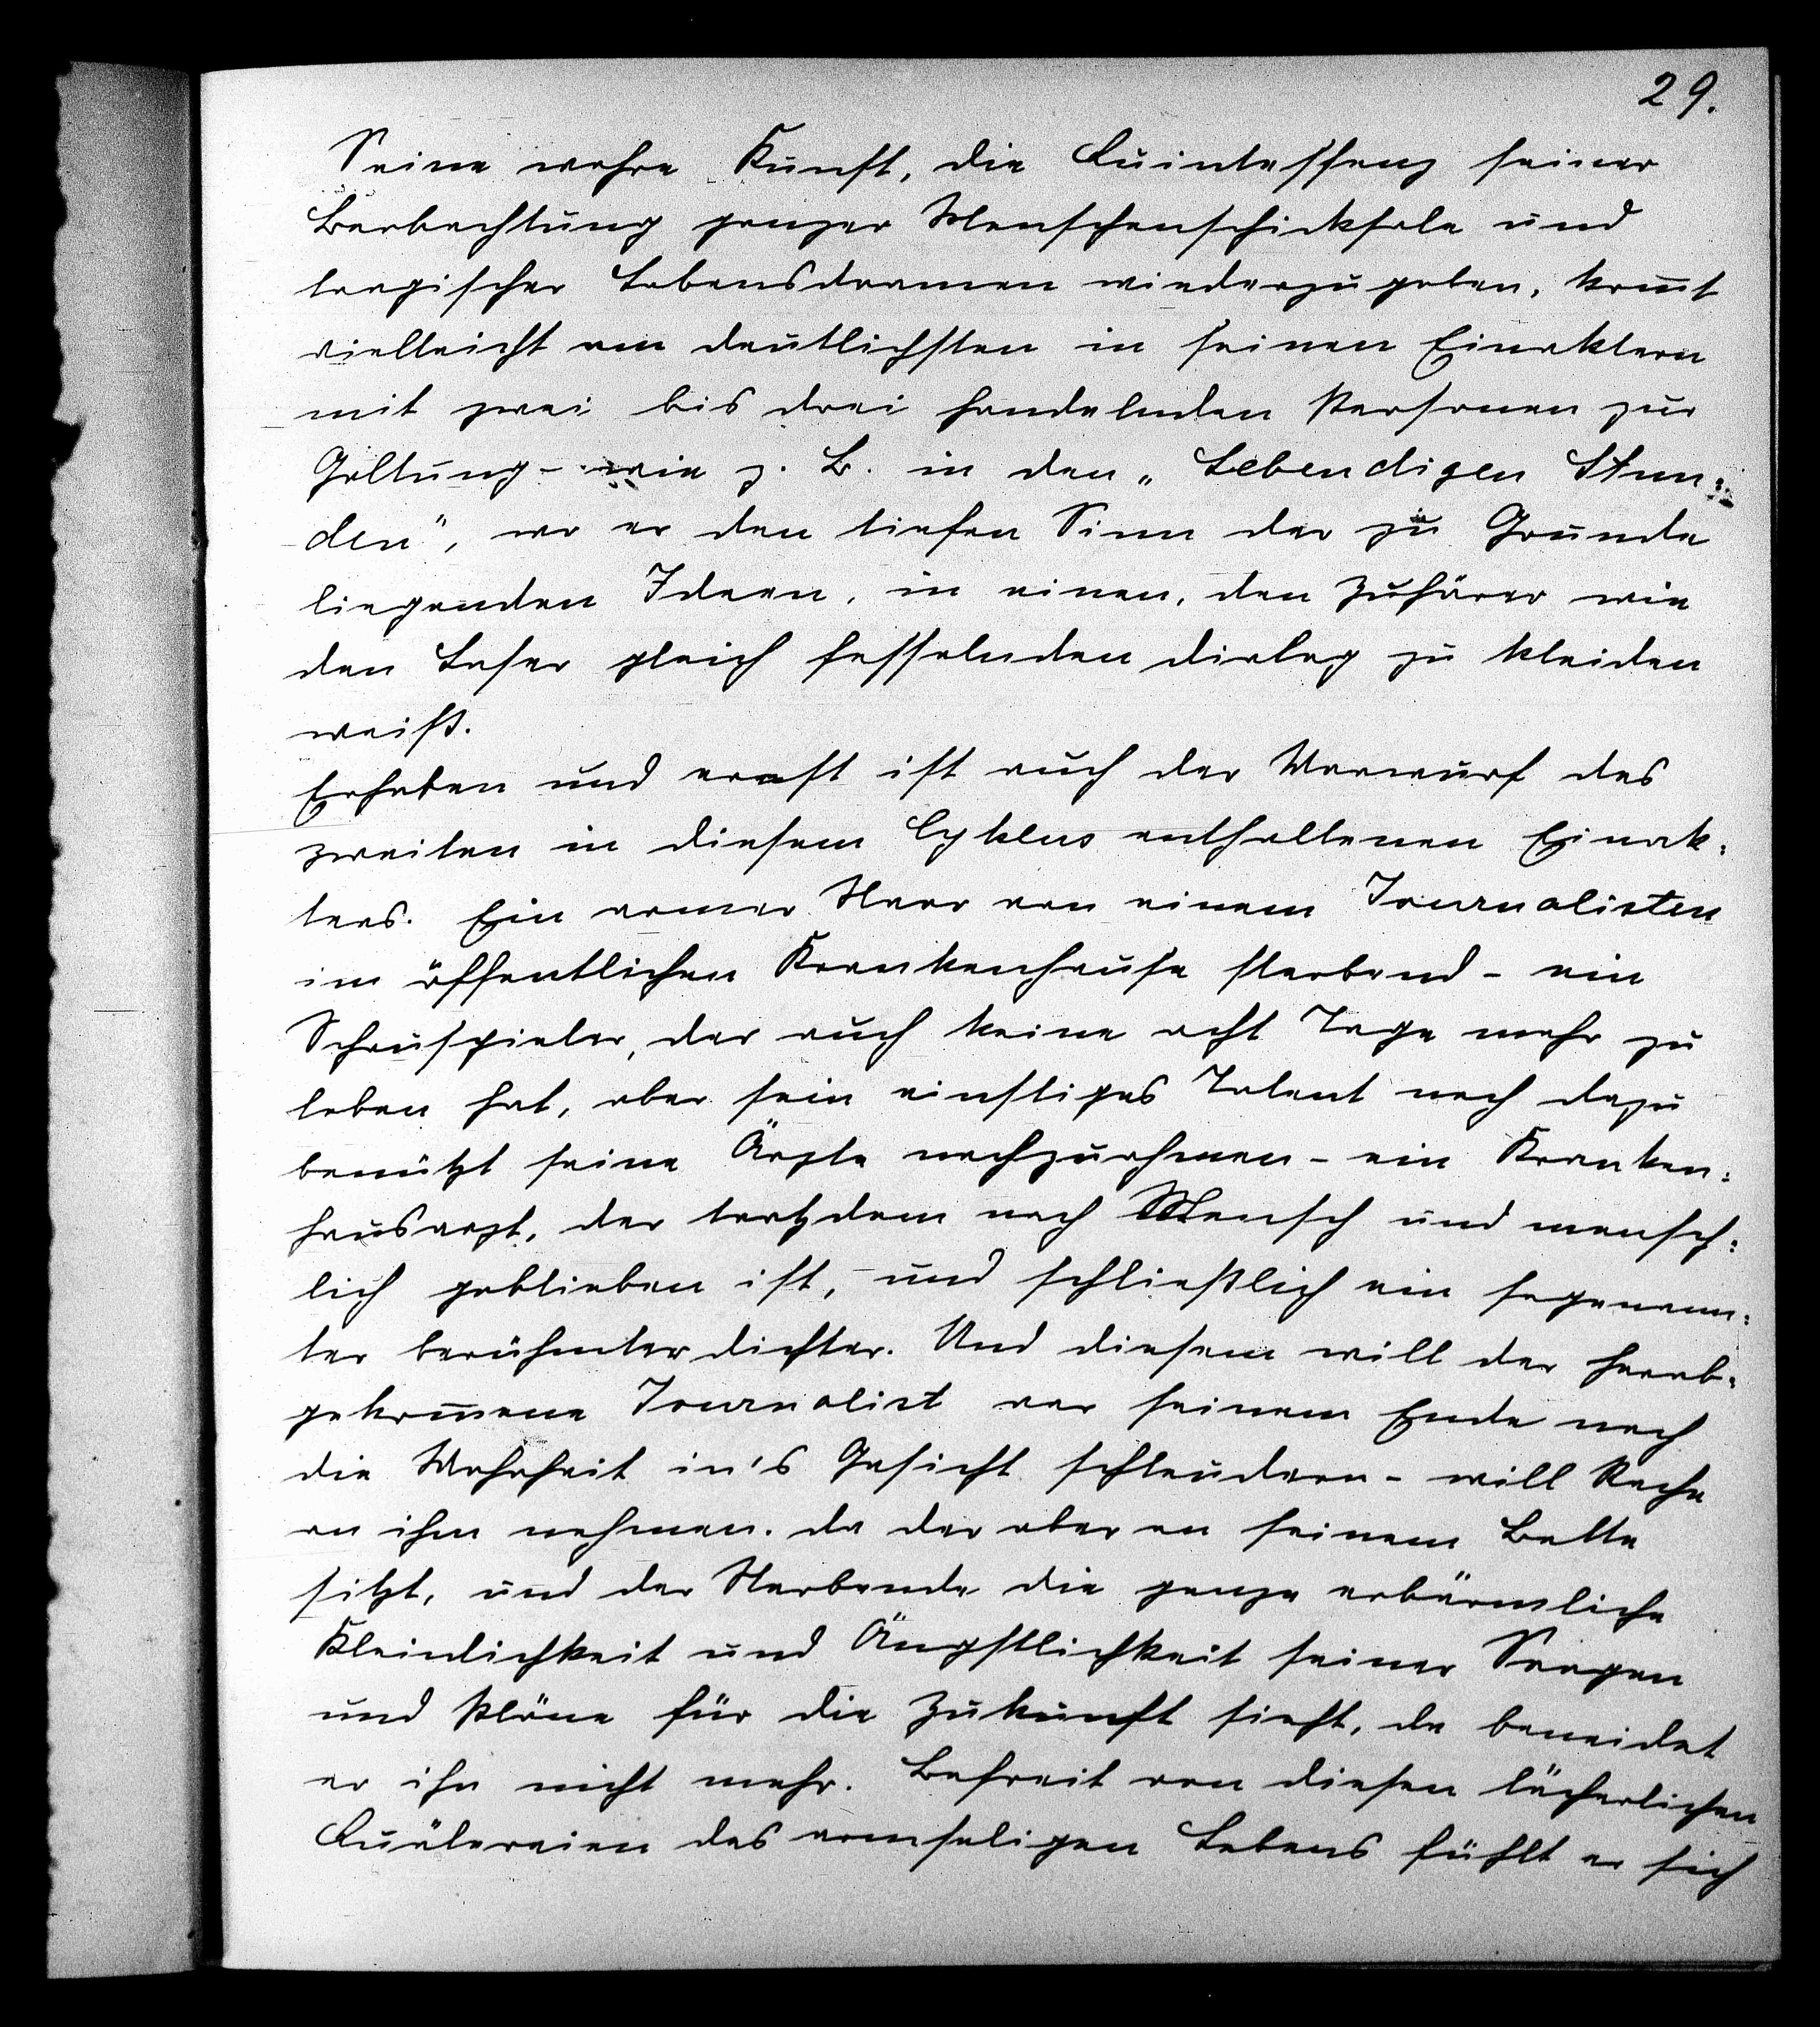 29.
Seine wahre Kunst, die Quintessenz seiner
Beobachtung ganzer Menschenschicksale und
tragischer Lebensdramen wiederzugeben, kom̅t
vielleicht am deutlichsten in seinen Einaktern
mit zwei bis drei handelnden Personen zur
Geltung - wie z. B. in den „Lebendigen Stun:
den", wo er den tiefen Sinn der zu Grunde
liegenden Ideen, in einen, den Zuhörer wie
den Leser gleich fesselnden Dialog zu kleiden
weiß.
Erhaben und ernst ist auch der Vorwurf des
zweiten in diesem Cyklus enthaltenen Einak:
ters. Ein armer Narr von einem Journalisten
im öffentlichen Krankenhause sterbend - ein
Schauspieler, der auch keine acht Tage mehr zu
leben hat, aber sein einstiges Talent noch dazu
benützt seine Ärzte nachzuahmen - ein Kranken:
hausarzt, der trotzdem noch Mensch und mensch:
lich geblieben ist, und schließlich ein sogenann:
ter berühmter Dichter. Und diesem will der herab:
gekom̅ene Journalist vor seinem Ende noch
die Wahrheit in's Gesicht schleudern - will Rache
an ihm nehmen. Da der aber an seinem Bette
sitzt, und der Sterbende die ganze erbärmliche
Kleinlichkeit und Ängstlichkeit seiner Sorgen
und Pläne für die Zukunft sieht, da beneidet
er ihn nicht mehr. Befreit von diesen lächerlichen
Quälereien des armseligen Lebens fühlt er sich